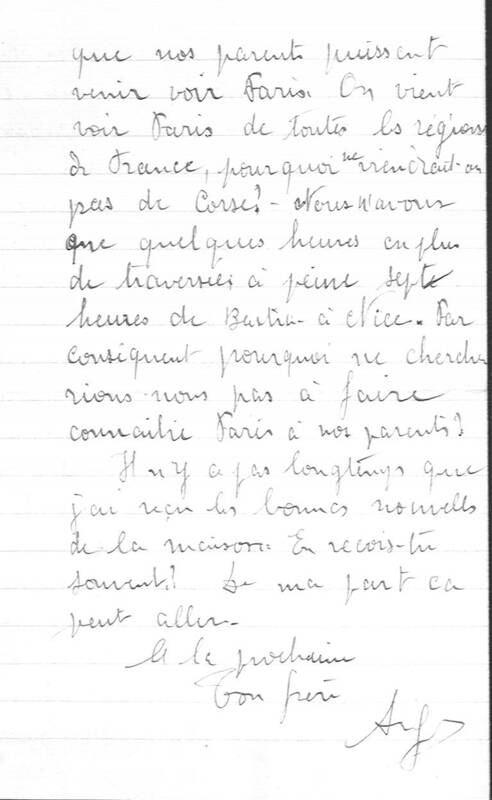 que nos parents puissent
venir voir Paris. On vient
voir Paris de toutes les régions
de France, pourquoi ne viendrait-on
pas de Corse? - Nous n'avons
que quelques heures en plus
de traversée, à peine sept
heures de Bastia à Nice. Par
conséquent pourquoi ne cherche
rions-nous pas à faire
connaitre Paris à nos parents?
Il n'y a pas longtemps que
j'ai reçu les bonnes nouvelles
de la maison. En reçois-tu
souvent? De ma part ca
peut aller.
A la prochaine
Ton frère